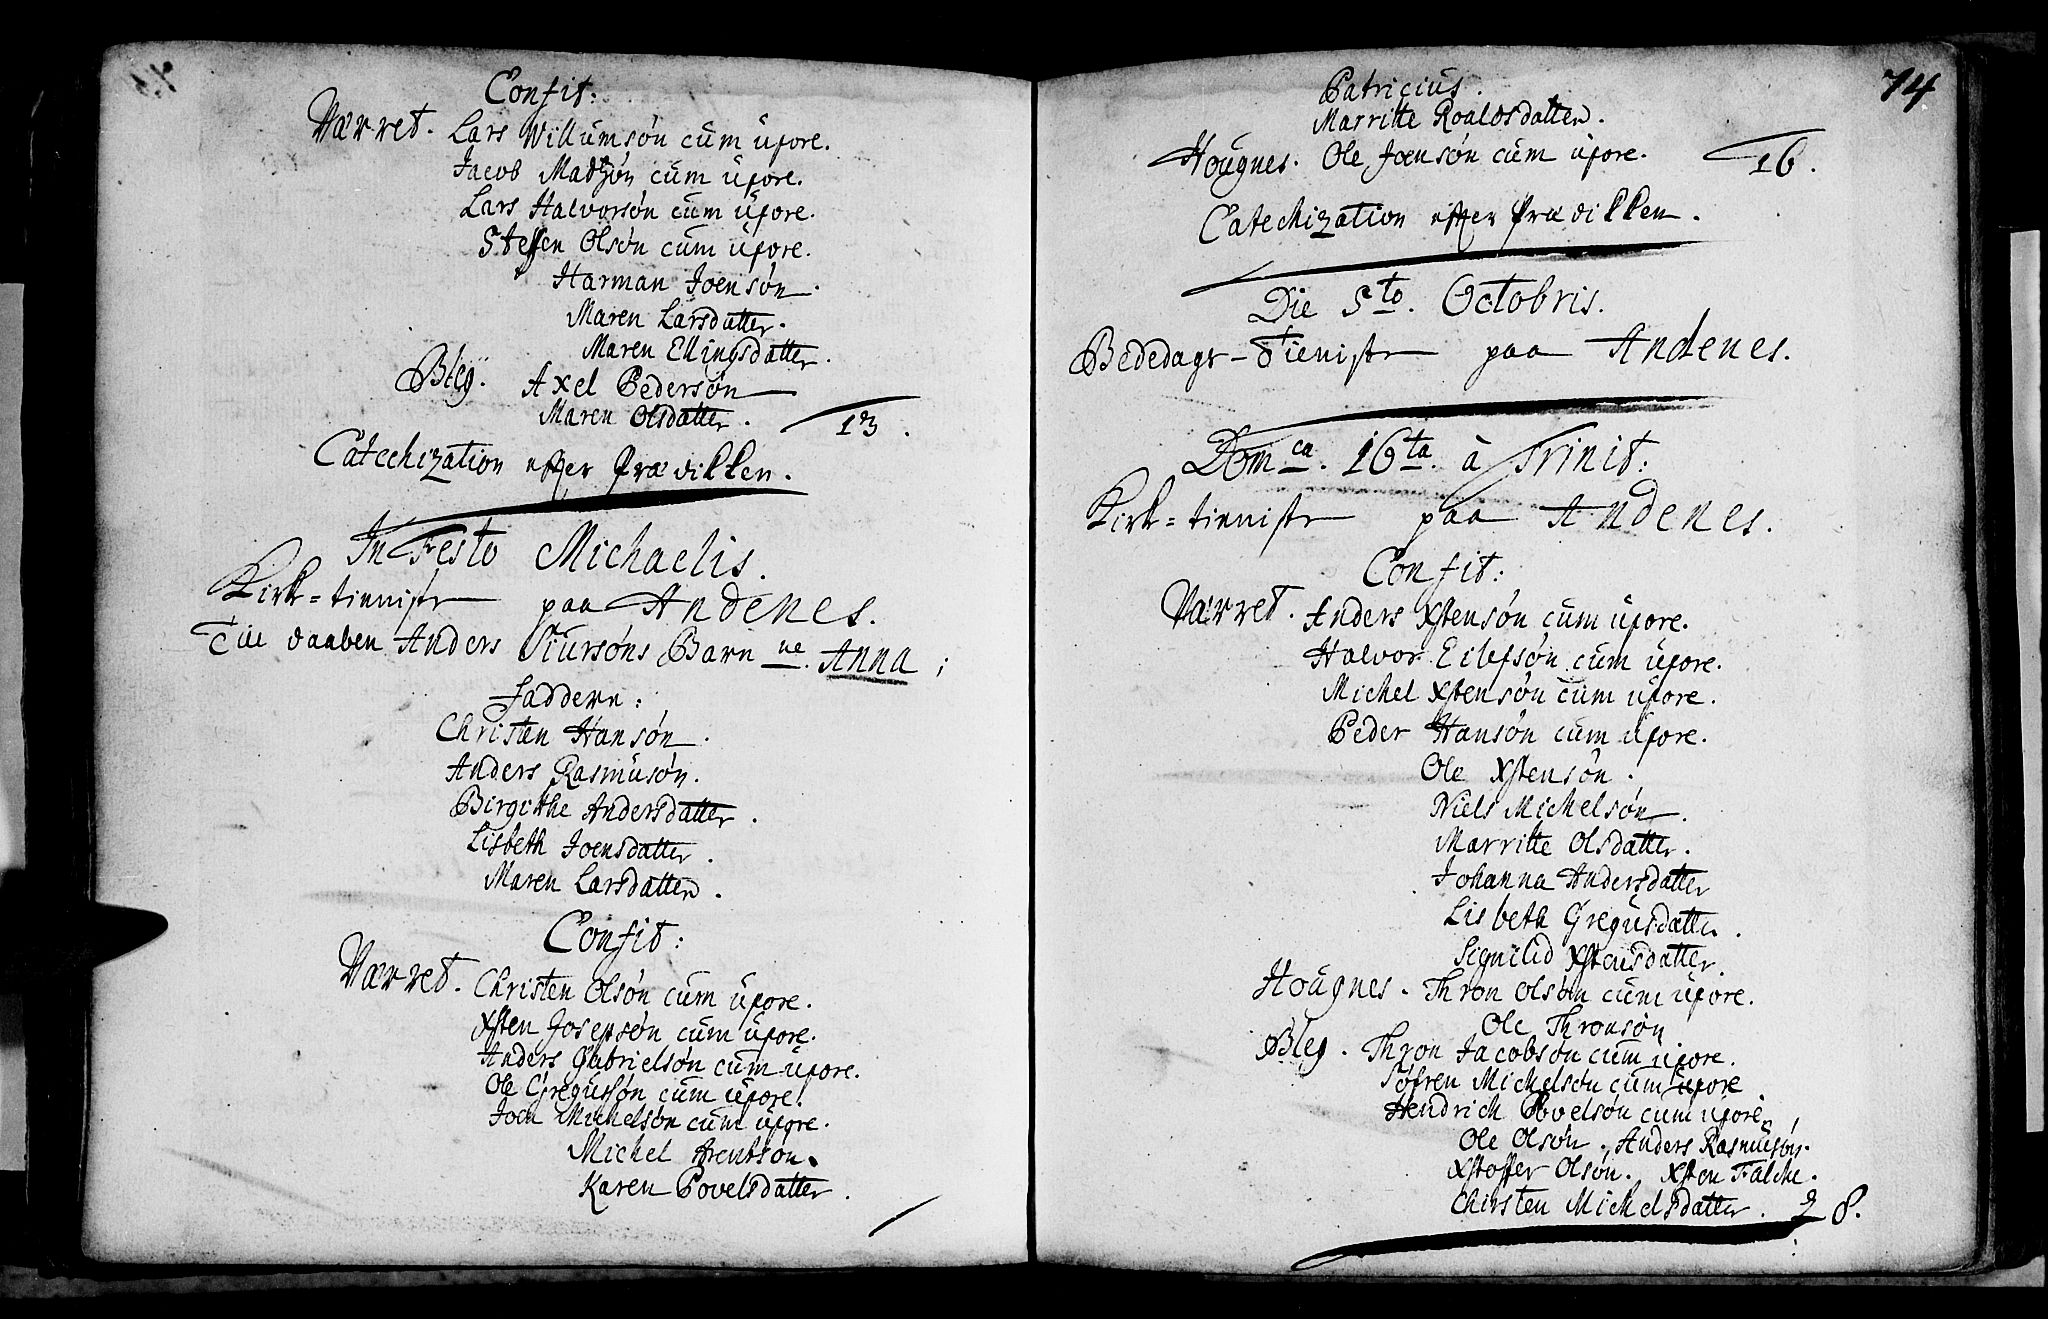 Confit:
Værret. Lars Willumsøn cum uxore.
Jacob Madzøn cum uxore.
Lars Halvorsøn cum uxore.
Steffen Olsøn cum uxore.
Harman Joensøn.
Maren Larsdatter.
Maren Ellingsdatter.
Bleg. Axel Pedersøn
Maren Olsdatter. 13.
Catechization efter Prædikken.
In Festo Michaelis.
Kirk=tieniste paa Andenes.
Till daaben Anders Siursøns Barn ne. Anna;
Faddere:
Christen Hansøn.
Anders Rasmusøn.
Birgithe Andersdatter.
Lisbeth Joensdatter.
Maren Larsdatter.
Confit:
Værret. Christen Olsøn cum uxore.
Xsten Josepsøn cum uxore.
Anders Gabrielsøn cum uxore.
Ole Gregussøn cum uxore.
Joen Michelsøn cum uxore.
Michel Arentson.
Karen Povelsdatter.
74
Patricius.
Marritte Roaldsdatter.
Hougnes. Ole Joensøn cum uxore. 16.
Catechization efter Prædikken.
Die 5to. Octobris.
Bededags-Tieniste paa Andenes.
Domca. 16ta. à Trinit:
Kirk=tieniste paa Andenes.
Confit:
Værret. Anders Xstensøn cum uxore.
Halvor Eilefsøn cum uxore.
Michel Xstensøn cum uxore.
Peder Hansøn cum uxore.
Ole Xstensøn.
Niels Michelsøn.
Marritte Olsdatter.
Johanna Andersdatter
Lisbeth Gregusdatter.
Signild Xstensdatter.
Hougnes. Thron Olsøn cum uxore.
Ole Thronsøn
Bleg. Thron Jacobsøn cum uxore.
Søfren Michelsøn cum uxore
Hendrich Povelsøn cum uxore.
Ole Olsøn. Anders Rasmusøn.
Xstoffer Olsøn. Xsten Falche.
Chirsten Michelsdatter. 28.